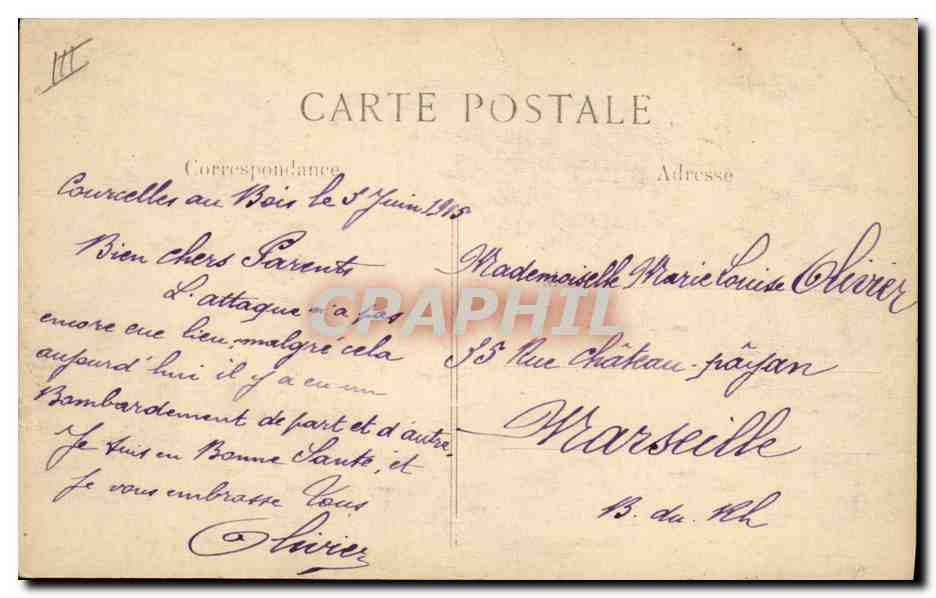 III
CARTE POSTALE
Correspondance
Courcelles au Bois le 5 Juin 1915
Bien chers Parents
L'attaque n'a pas
encore eue lieu, malgré cela
aujourd'hui il y a eu un
Bombardement de part et d'autre.
Je suis en Bonne Santé, et
Je vous embrasse Tous
Olivier
Adresse
Mademoiselle Marie Louise Olivier
35 Rue Château-pâyan
Marseille
B. du. Rh
CPAPHIL